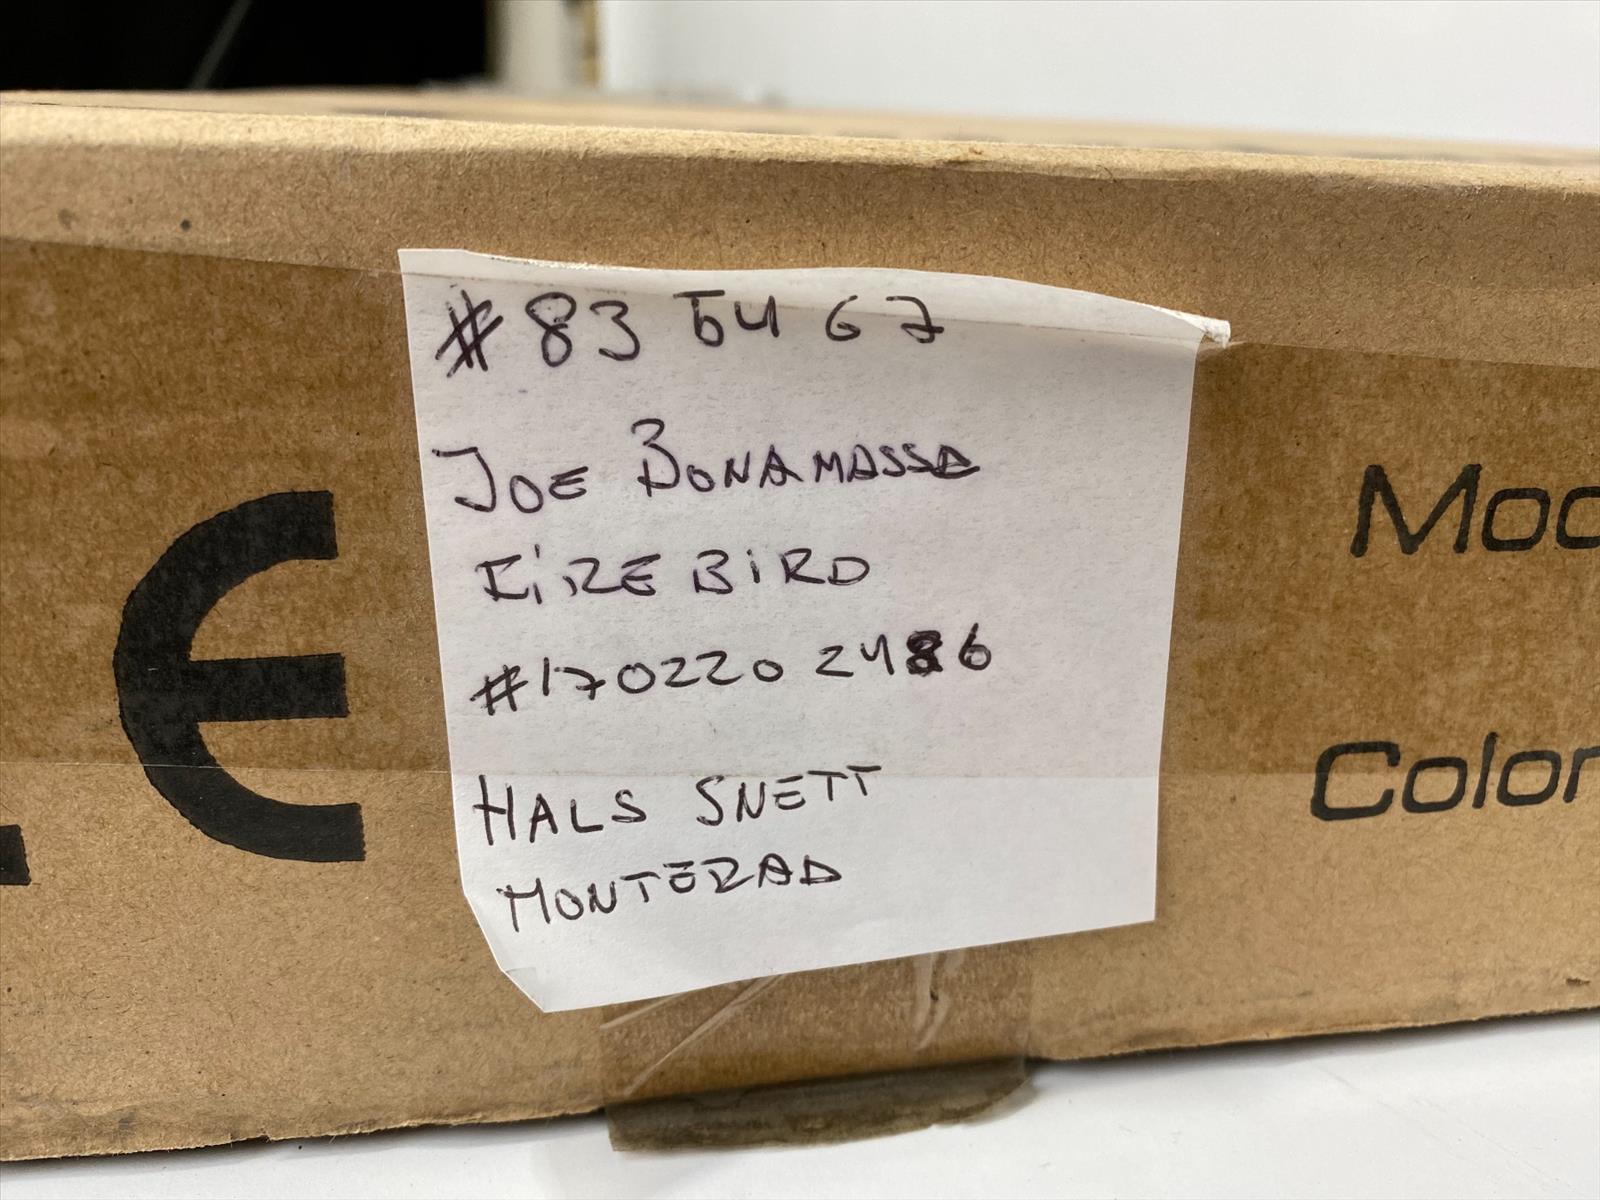 #835467
JOE BONAMASSA
FIREBIRD
#1702202486
HALS SNETT
MONTERAD
CE
Moo
Color